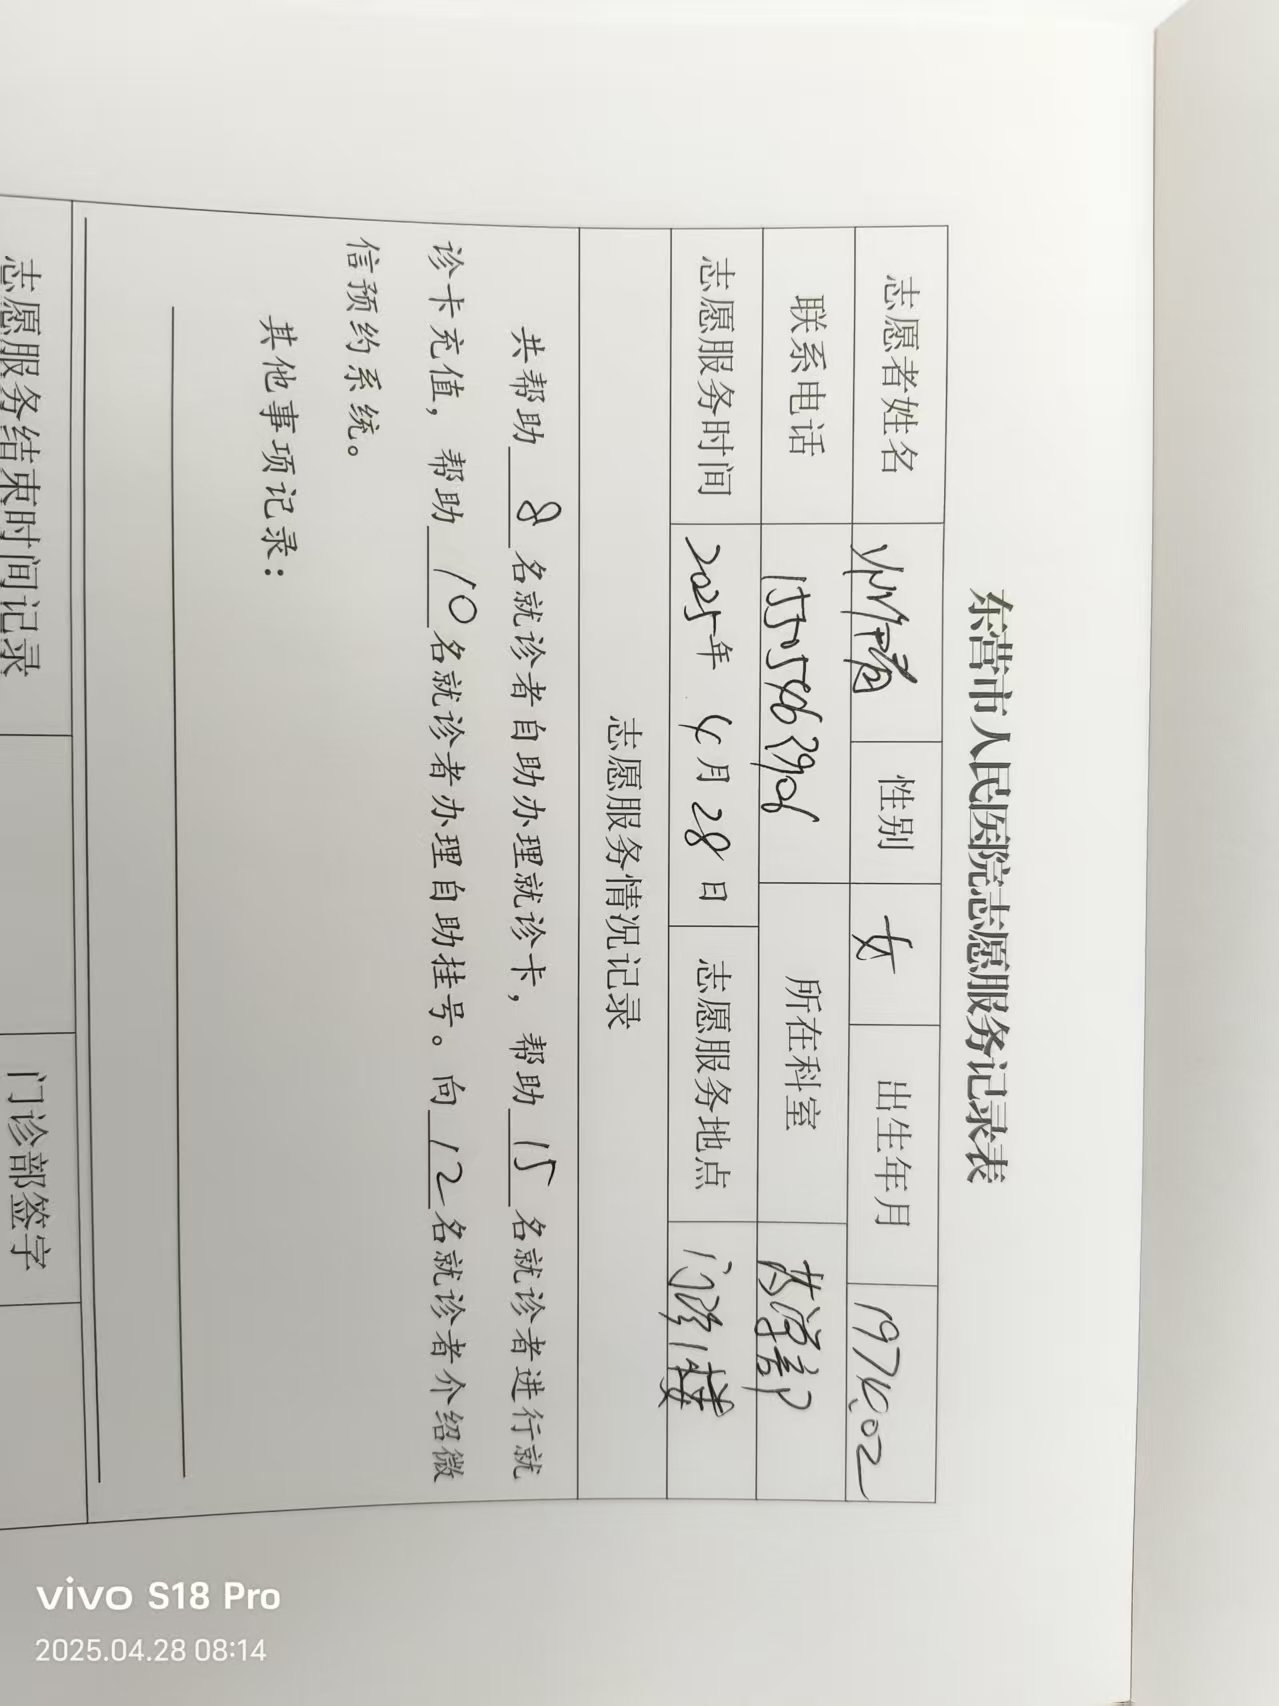 东营市人民医院志愿服务记录表
志愿者姓名 性别 女 出生年月 1974.02
联系电话 所在科室 药学部
志愿服务时间 2025年 4月 28日 志愿服务地点 门诊楼
志愿服务情况记录
共帮助 8 名就诊者自助办理就诊卡，帮助 15 名就诊者进行就
诊卡充值，帮助 10 名就诊者办理自助挂号。向 12 名就诊者介绍微
信预约系统。
其他事项记录：
志愿服务结束时间记录 门诊部签字
vivo S18 Pro
2025.04.28 08:14